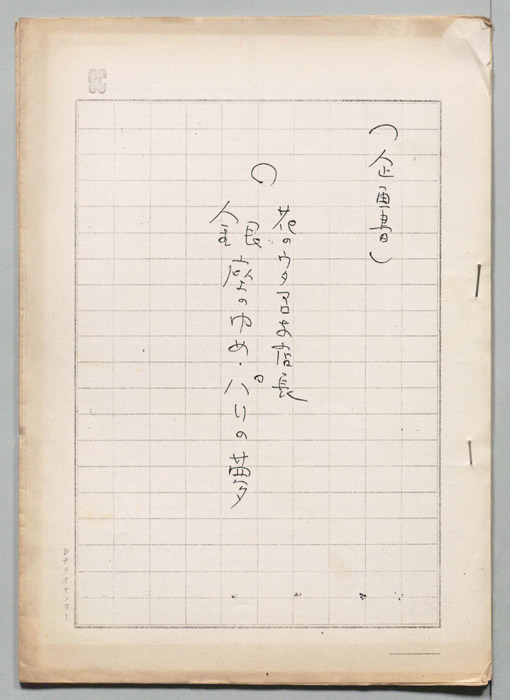 （企画書）
○
花のウタ子女店長
銀座のゆめ・パリの夢
シナリオセンター